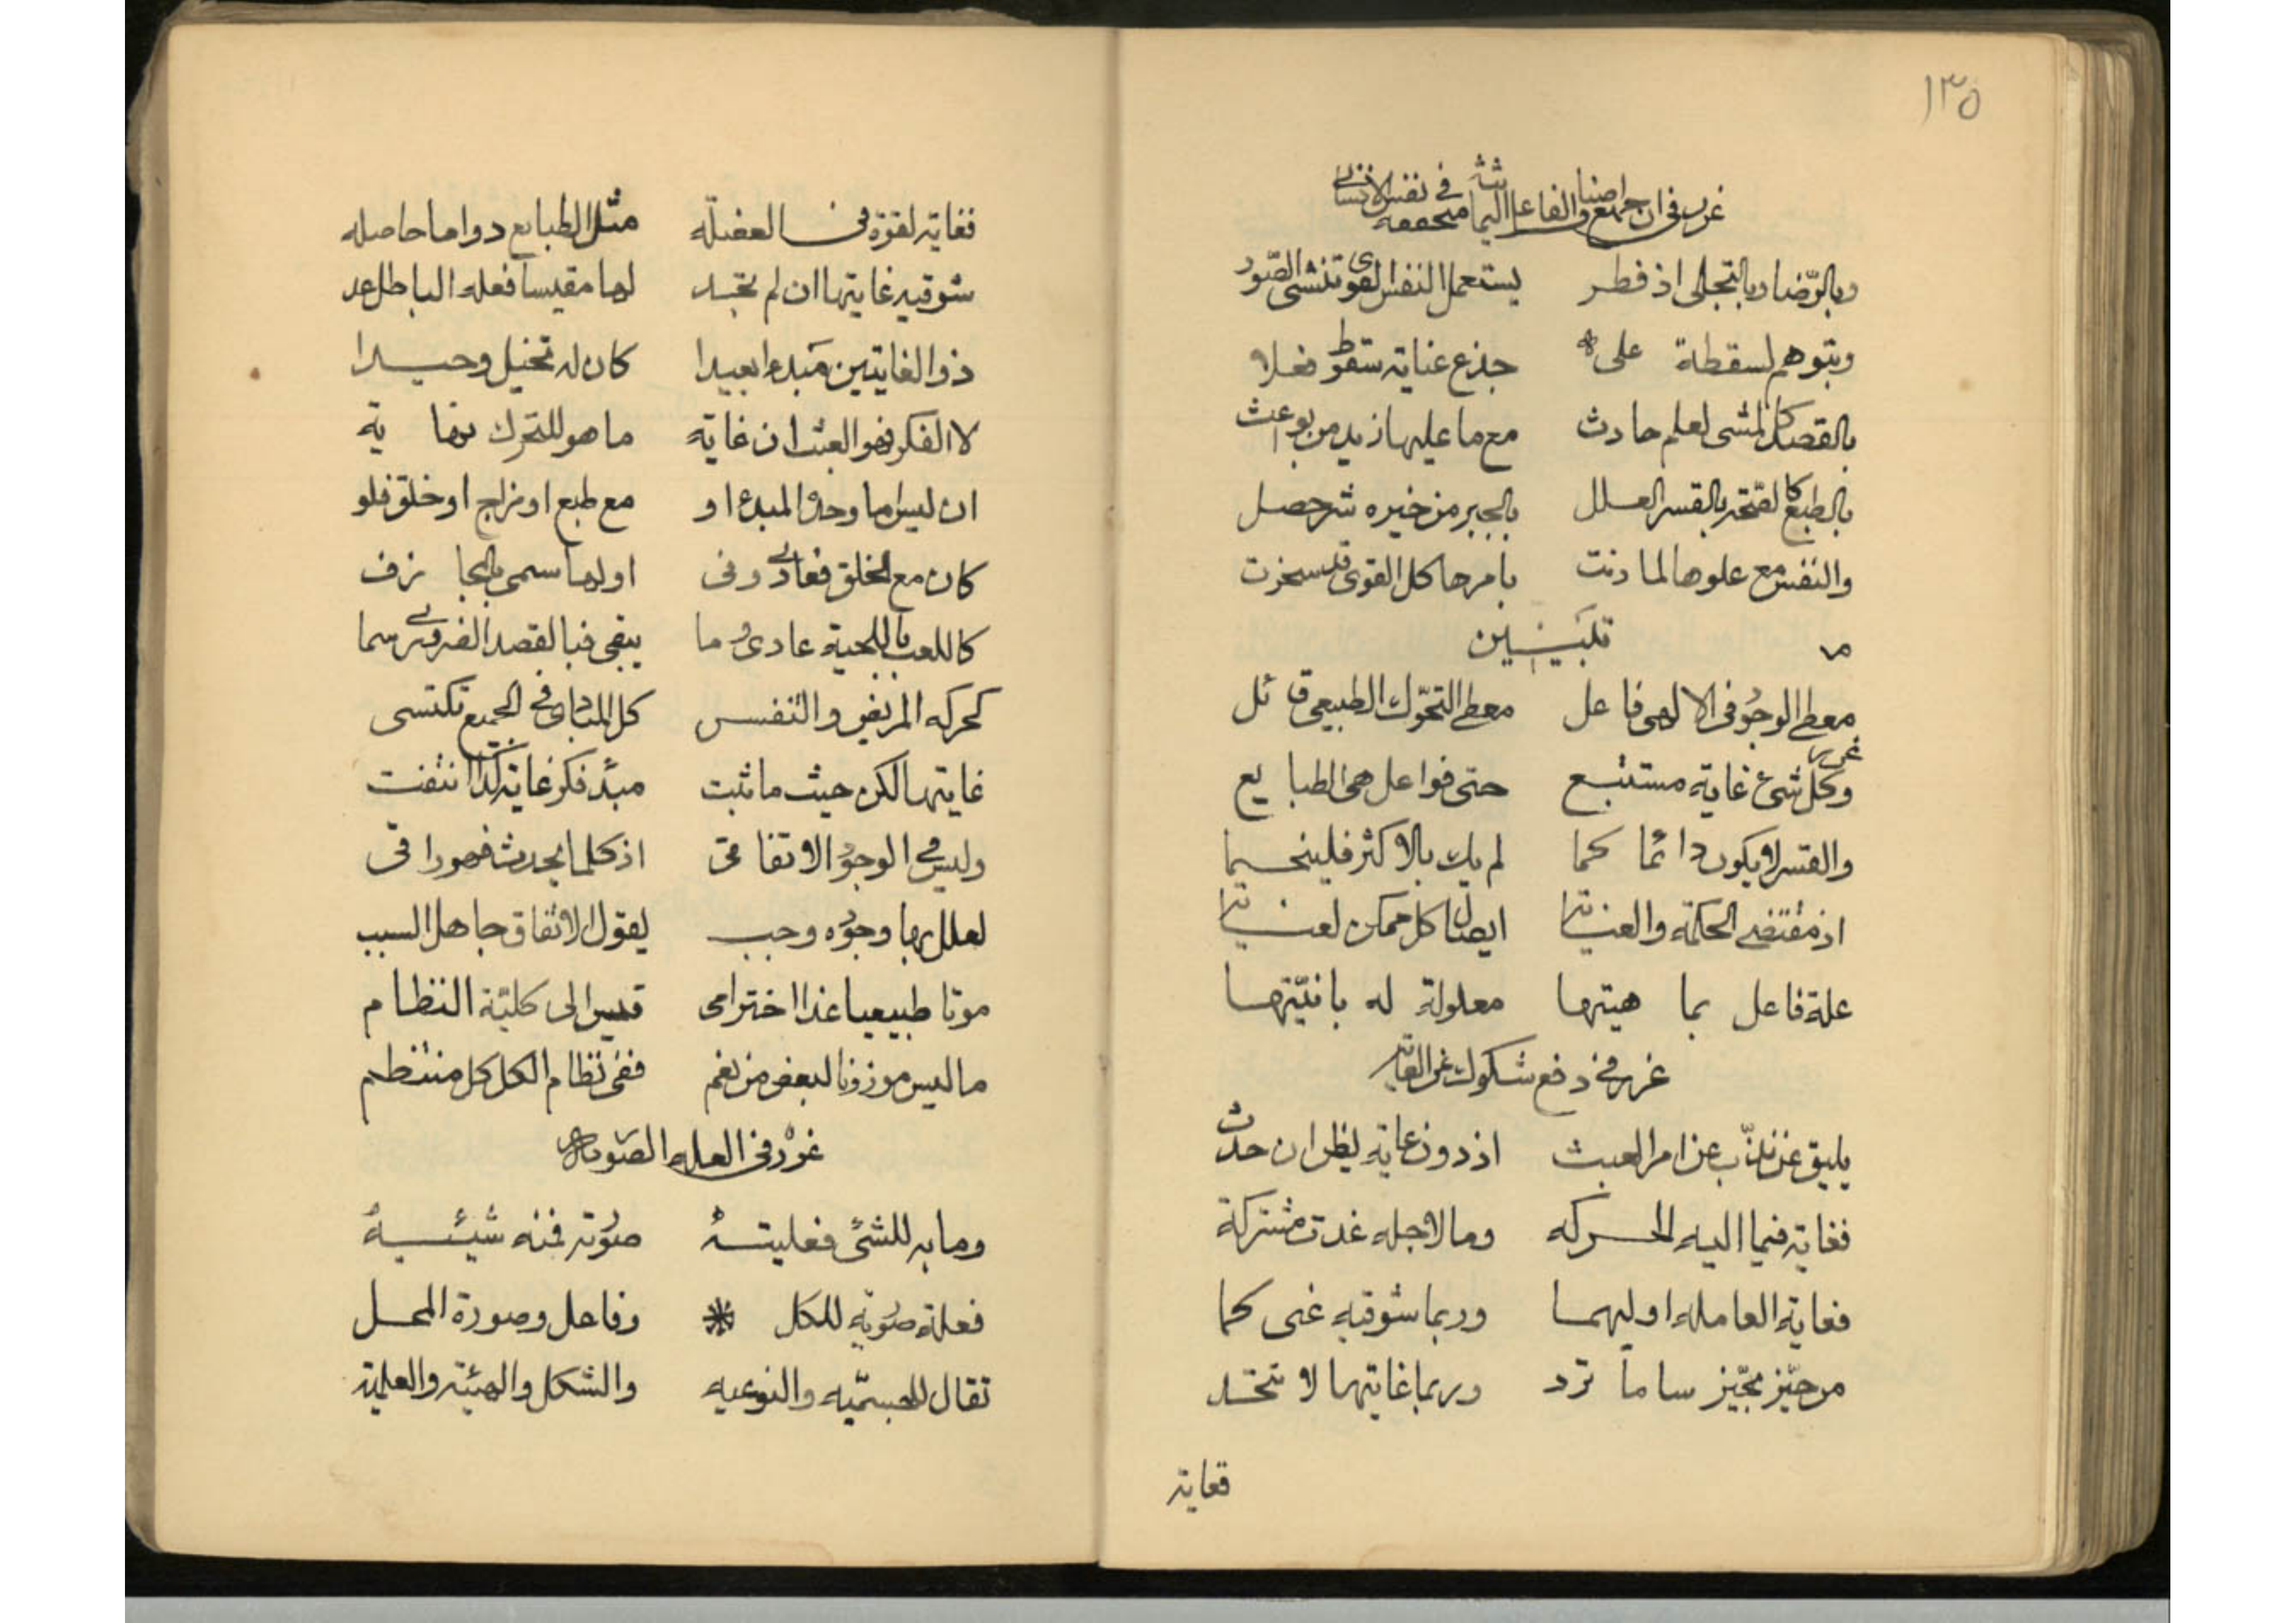 ١٣٥
غرر في ان جميع اصناف الفاعل الثمانية متحققة في نفس الانسانى
وبالرّضا وبالتجلى اذ فطر يستعمل النفس القوى تنشى الصّور
وبتوهم لسقطة على جذع عناية سقوط فعلا
بالقصد كالمشى لعلم حادث مع ما عليها زيد من بواعث
بالطبع كالصّحة بالقسر العلل بالجبر من خيره شر حصل
والنفس مع علوها لما دنت بامرها كل القوى قد سخرت
معطى الوجود فى الالهى فاعل معطى التحرّك الطبيعى قائل
غرر
وكل شىء غاية مستتبع حتى فواعل هى الطبايع
والقسر لا يكون دائما كما لم يك بالاكثر فلينحسما
اذ مقتضى الحكمة والعناية ايصال كل ممكن لغاية
علة فاعل بما هيتها معلولة له بانيّتها
غرر فى دفع شكوك عن الغاية
يليق عن ذبّ عن امر العبث اذ دون غاية يظن ان حدث
فغاية فيما اليه الحركه وما لاجله غدت مشتركة
فغاية العامله اوليهما وربما شوقيه غى كما
من حيّز بحيّز ساما ترد وربما غايتها لا تتحّد
فغاية
فغاية لقوة فى العضلّه مثل الطبايع دواما حاصله
شوقيه غايتها ان لم تجد لها مقيسا فعله الباطل عد
ذو الغايتين مبدءا بعيدا كان له تخيل وحيدا
لا الفكر فهو العبث ان غاية ما هو للتحرك نهاية
ان ليس اما وحده المبدء او مع طبع او مزاج او خلق فلو
كان مع الخلق فعادى وفى اولها سمى بالجازف
كاللعب باللحية عادى وما يبقى فبالقصد الضرورى سما
كحركه المريض والتنفس كل المبادى فى الجميع تكتسى
غايتها لكن حيث ما ثبت مبدء فكر غاية كذا انتفت
وليس فى الوجود الاتفاقى اذ كلما يحدث فهو راقى
لعلل بها وجوده وجب يقول الاتفاق جاهل السبب
موتا طبيعيا غدا اخترامى قيس الى كليّة النظام
ما ليس موزونا لبعض من نغم ففى نظام الكل كل منتظم
غرر فى العلة الصوريه
وما به للشىء فعليته صورته فمنه شيئيه
فعلة صوريه للكل * وفاعل وصورة المحل
تقال للجسميّه والنوعيه والشكل والهيئة والعلمية